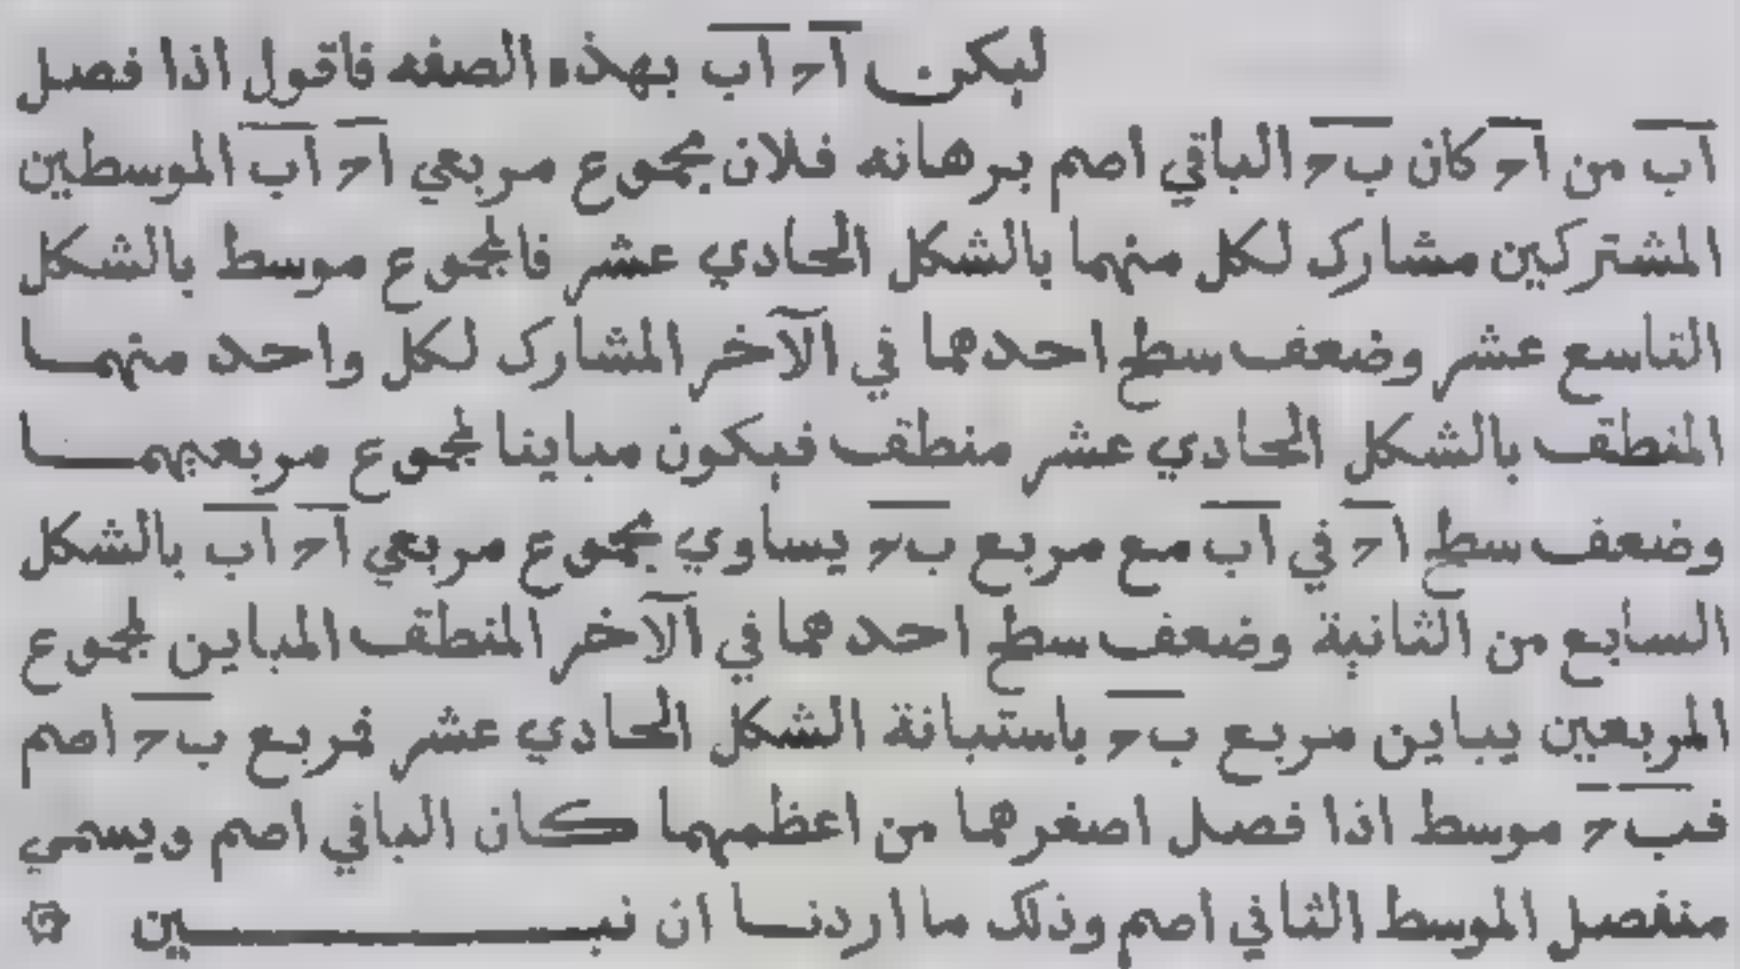 ليكن اح اب بهذه الصفه فاقول اذا فصل
اب من اح كان ب ح الباقي اصم برهانه فلان مجموع مربعي اح اب الموسطين
المشتركين مشارك لكل منهما بالشكل الحادي عشر فالمجموع موسط بالشكل
التاسع عشر وضعف سطح احدهما في الآخر المشارك لكل واحد منهما
المنطقف بالشكل الحادي عشر منطقف فيكون مباينا لمجموع مربعيهما
وضعف سطح اح في اب مع مربع ب ح يساوي مجموع مربعي اح اب بالشكل
السابع من الثانية وضعف سطح احدهما في الآخر المنطقف المباين لمجموع
المربعين يباين مربع ب ح باستبانة الشكل الحادي عشر فمربع ب ح اصم
فب ح موسط اذا فصل اصغرهما من اعظمهما كان الباقي اصم ويسمي
منفصل الموسط الثاني اصم وذلك ما اردنا ان نبين